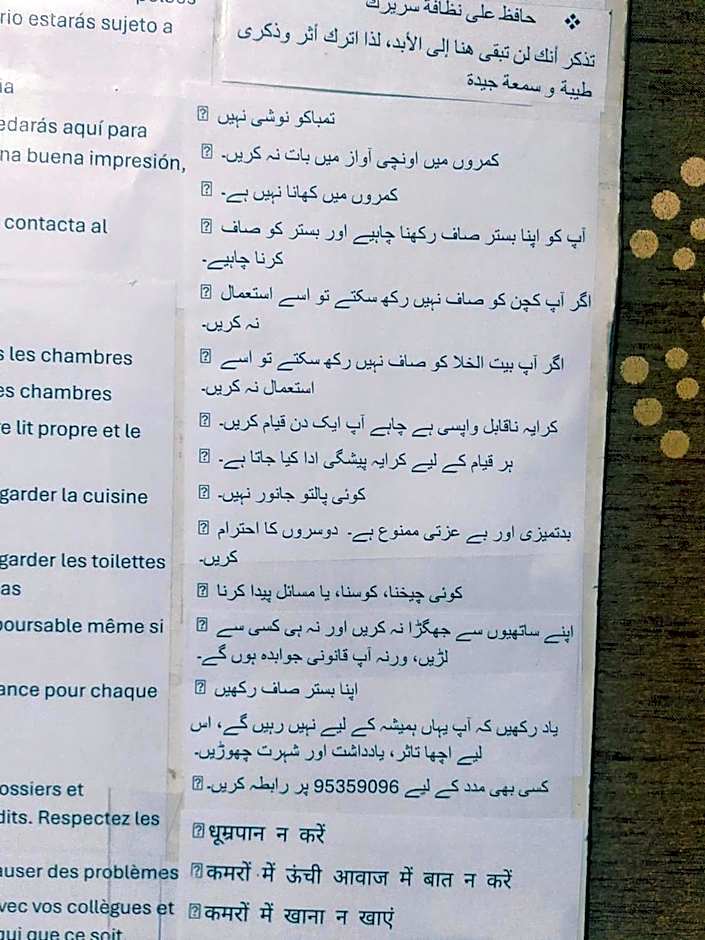 rio estarás sujeto a
edarás aquí para
na buena impresión,
contacta al
s les chambres
es chambres
e lit propre et le
garder la cuisine
garder les toilettes
as
boursable même si
ance pour chaque
ossiers et
dits. Respectez les
auser des problèmes
vec vos collègues et
qui que ce soit
❖ حافظ على نظافة سريرك
تذكر أنك لن تبقى هنا إلى الأبد، لذا اترك أثر وذكرى
طيبة و سمعة جيدة
تمباکو نوشی نہیں
کمروں میں اونچی آواز میں بات نہ کریں۔
کمروں میں کھانا نہیں ہے۔
آپ کو اپنا بستر صاف رکھنا چاہیے اور بستر کو صاف
کرنا چاہیے۔
اگر آپ کچن کو صاف نہیں رکھ سکتے تو اسے استعمال
نہ کریں۔
اگر آپ بیت الخلا کو صاف نہیں رکھ سکتے تو اسے
استعمال نہ کریں۔
کرایہ ناقابل واپسی ہے چاہے آپ ایک دن قیام کریں۔
ہر قیام کے لیے کرایہ پیشگی ادا کیا جاتا ہے۔
کوئی پالتو جانور نہیں۔
بدتمیزی اور بے عزتی ممنوع ہے۔ دوسروں کا احترام
کریں۔
کوئی چیخنا، کوسنا، یا مسائل پیدا کرنا
اپنے ساتھیوں سے جھگڑا نہ کریں اور نہ ہی کسی سے
لڑیں، ورنہ آپ قانونی جوابدہ ہوں گے۔
اپنا بستر صاف رکھیں
یاد رکھیں کہ آپ یہاں ہمیشہ کے لیے نہیں رہیں گے، اس
لیے اچھا تاثر، یادداشت اور شہرت چھوڑیں۔
کسی بھی مدد کے لیے 95359096 پر رابطہ کریں۔
धूम्रपान न करें
कमरों में ऊंची आवाज में बात न करें
कमरों में खाना न खाएं